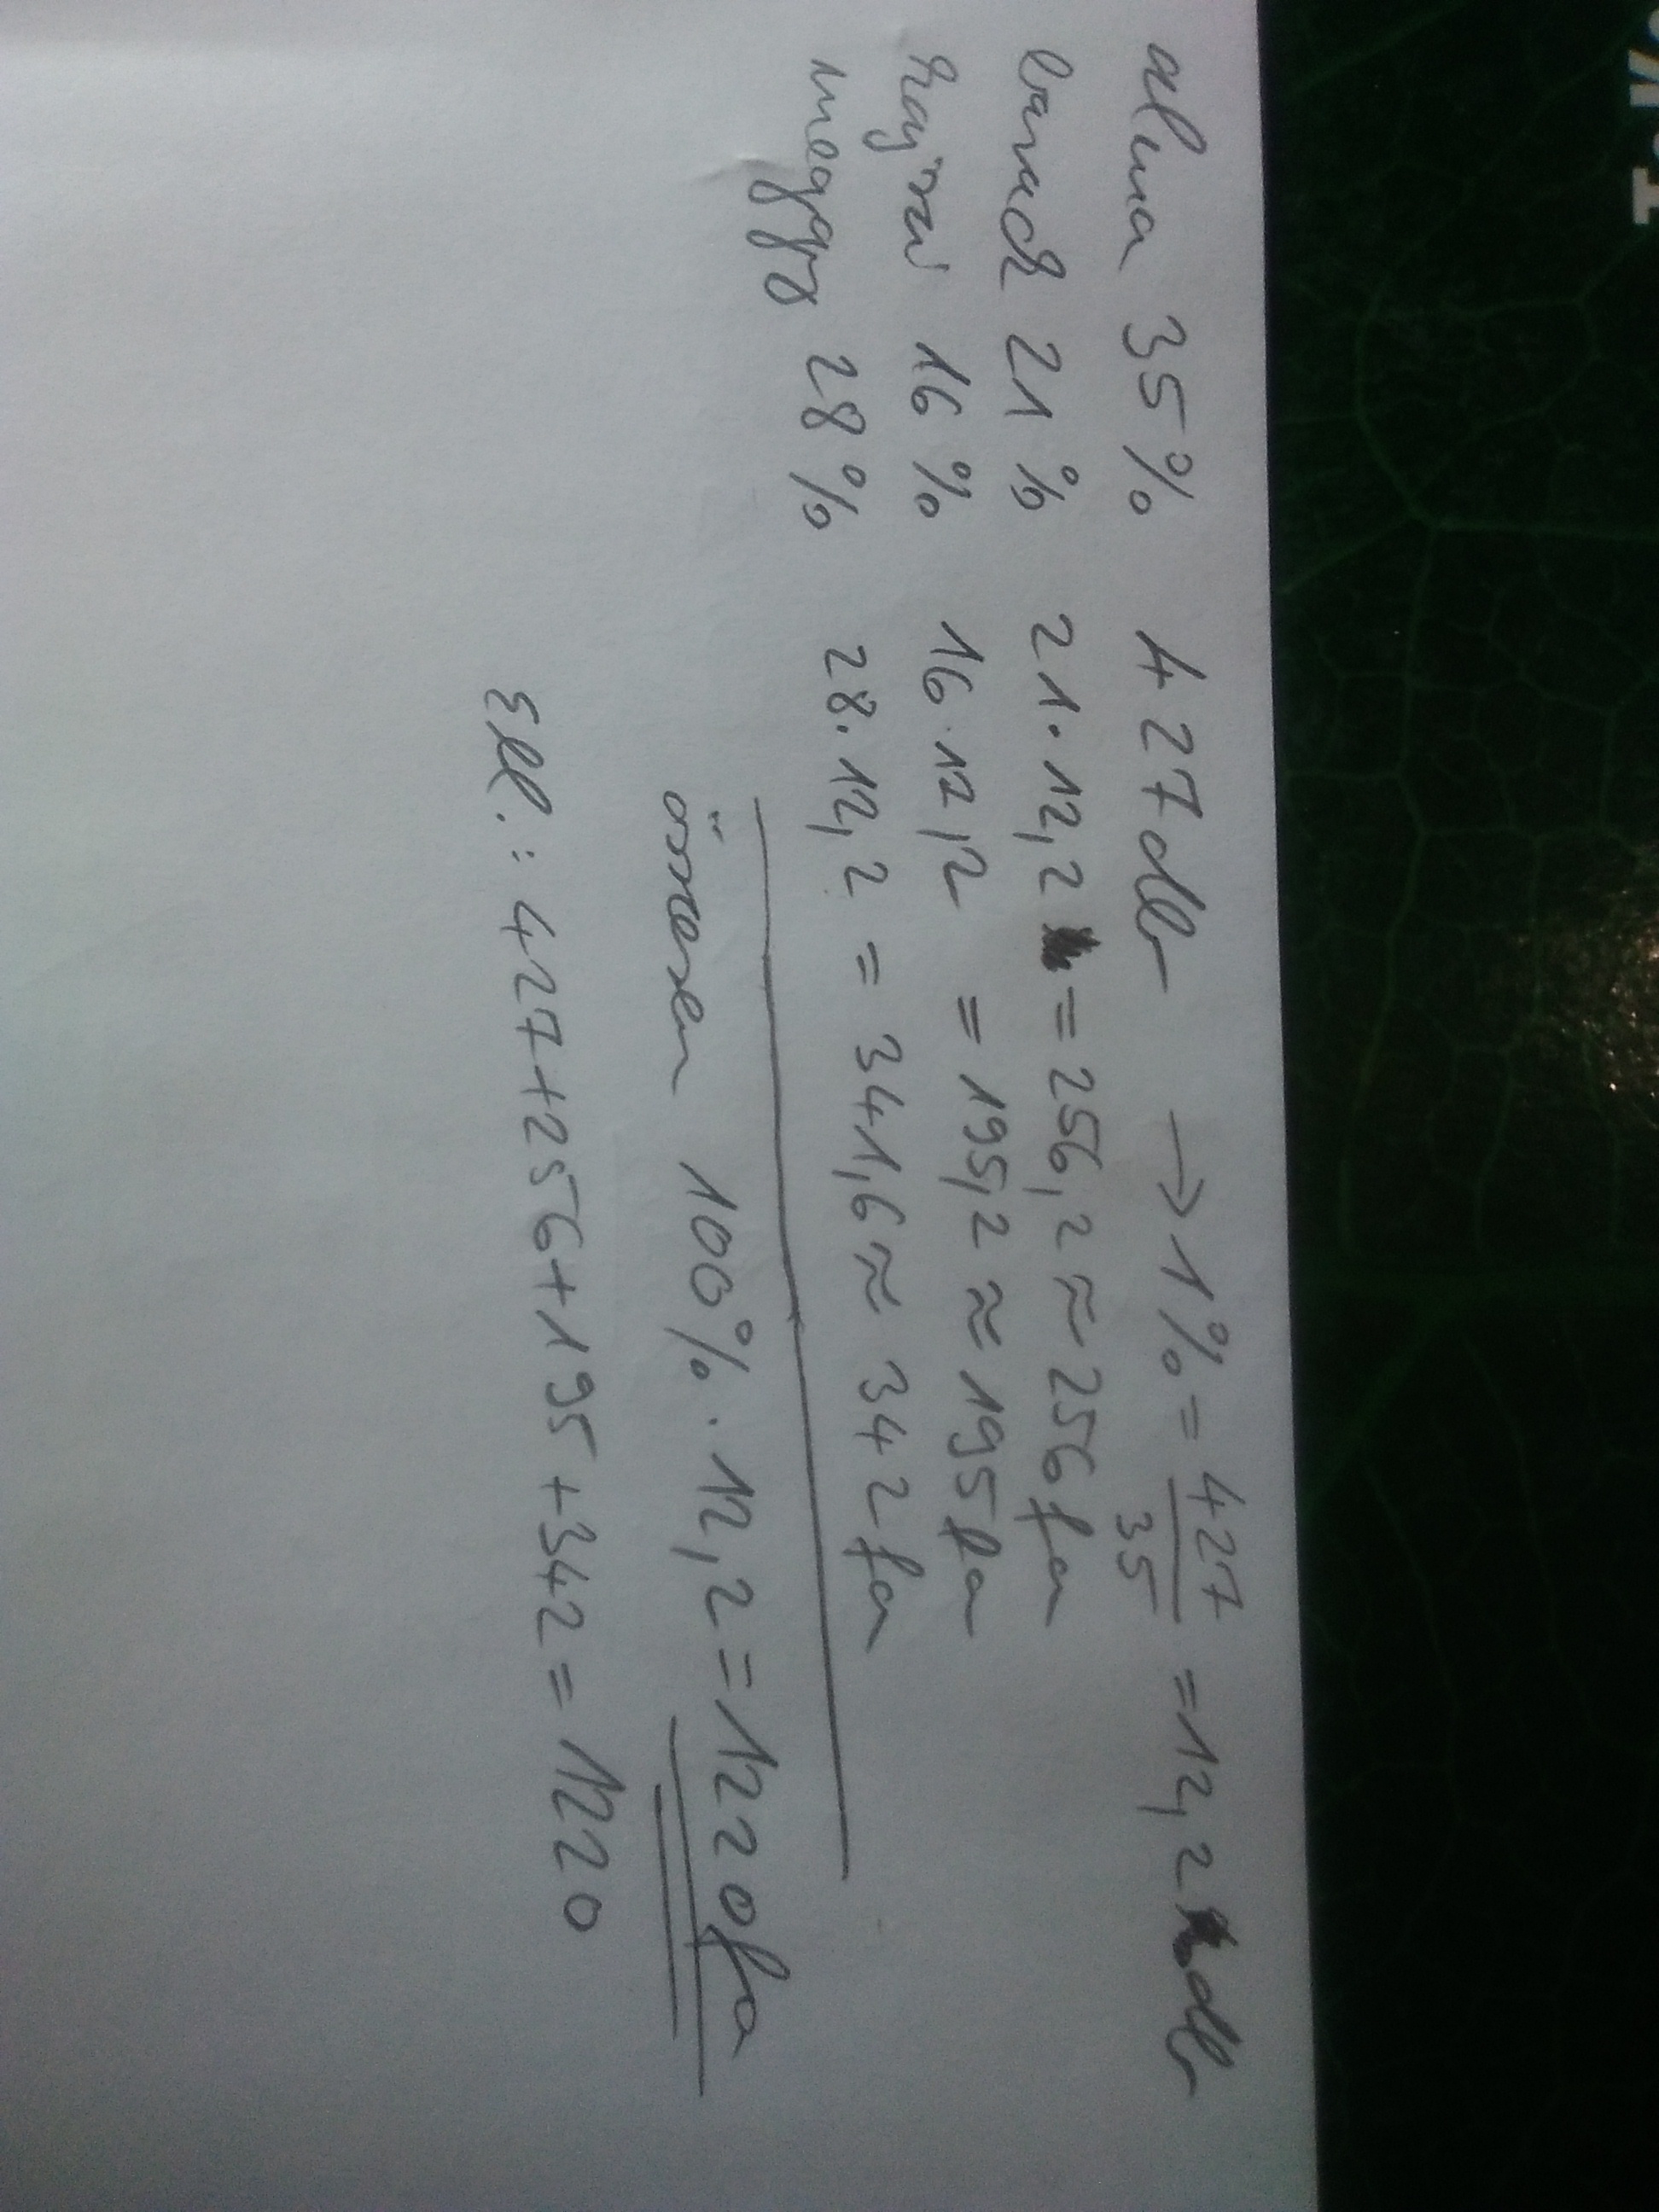 alma 35% 427db → 1% = 427/35 = 12,2 db
barack 21% 21·12,2 = 256,2 ≈ 256 fa
kajszi 16% 16·12,2 = 195,2 ≈ 195 fa
meggy 28% 28·12,2 = 341,6 ≈ 342 fa
összesen 100%·12,2 = 1220 fa
Ell.: 427+256+195+342 = 1220